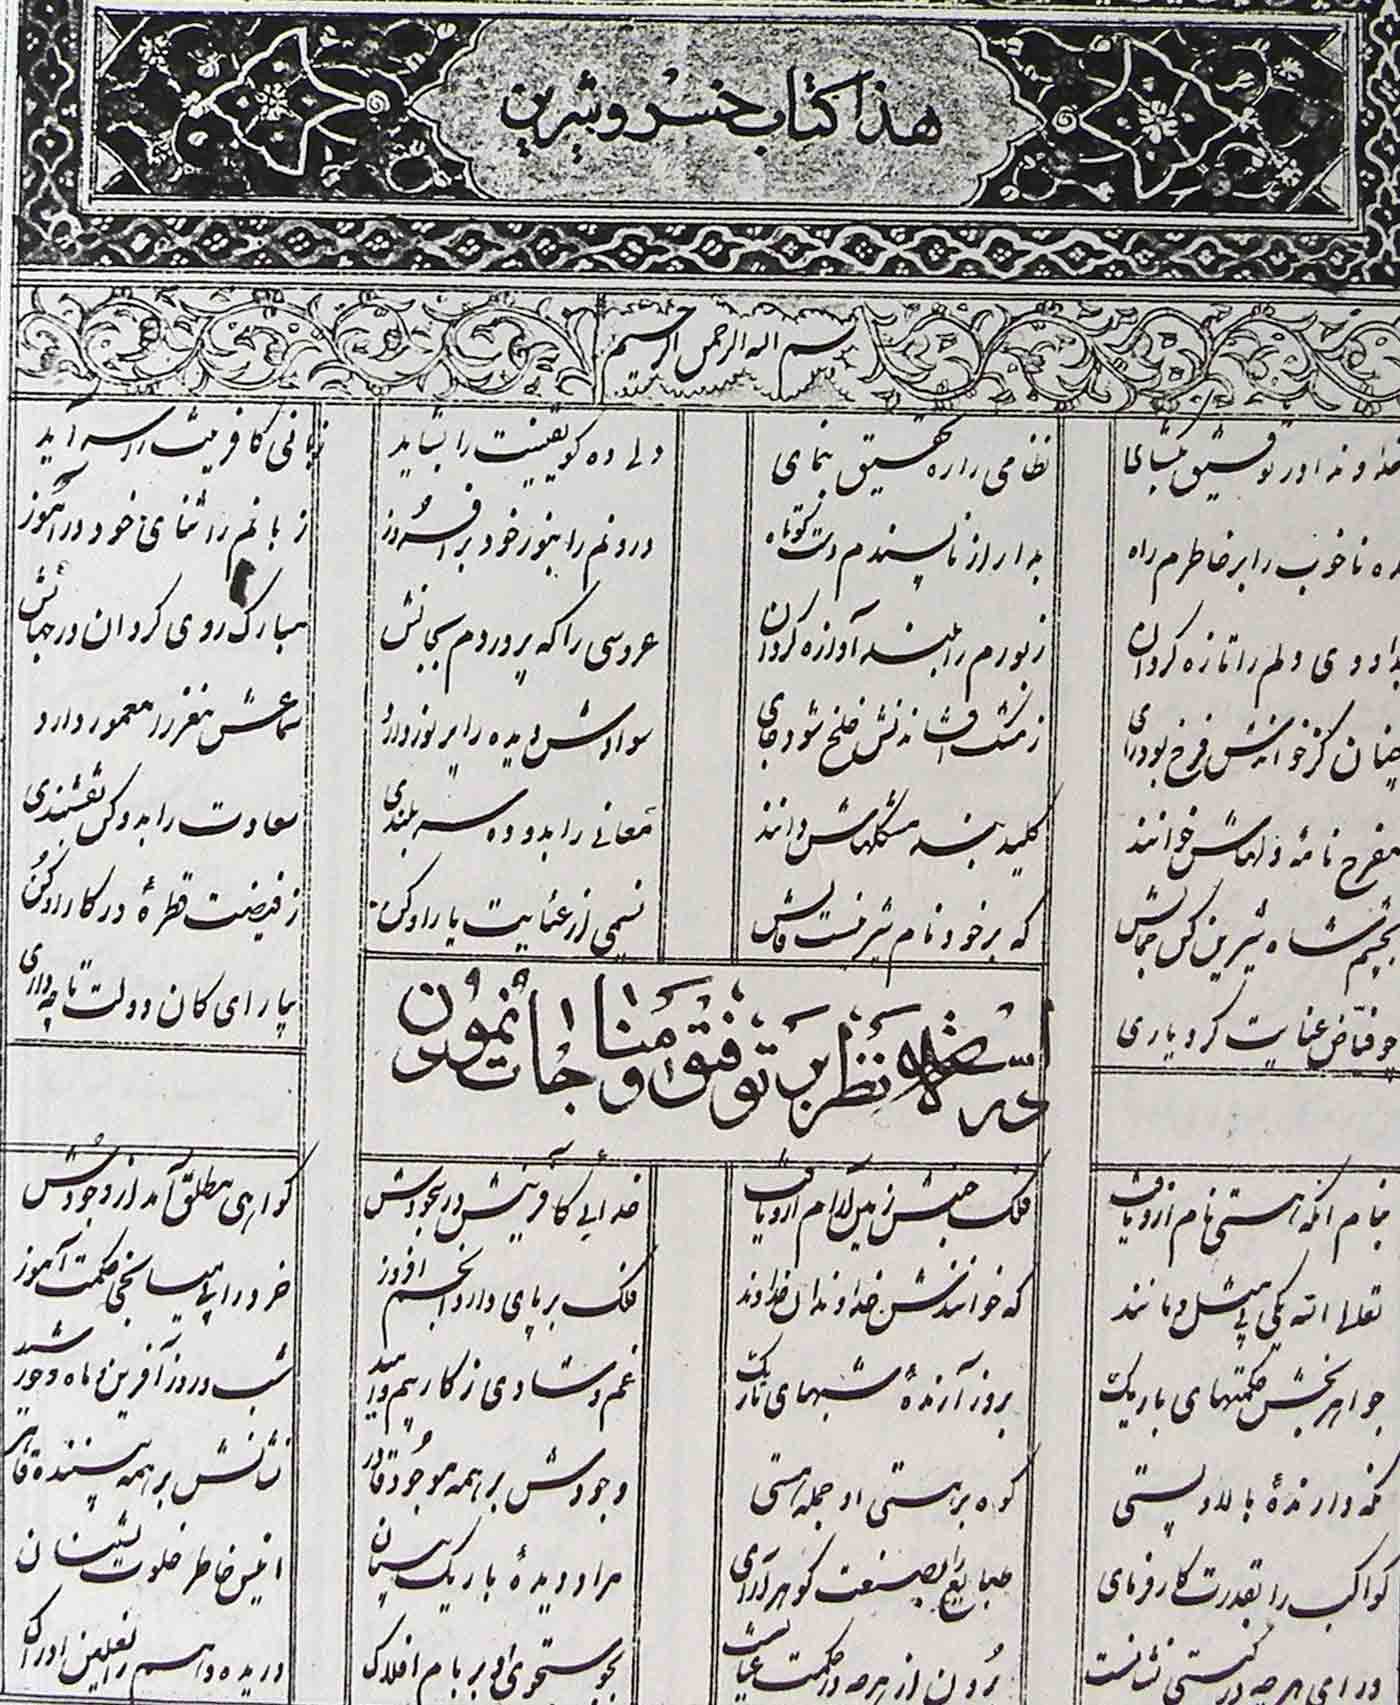 هذا کتاب خسرو شیرین
بسم الله الرحمن الرحیم
خداوندا در توفیق بکشای نظامی را ره تحقیق بنمای دلی ده کو یقینت را بشاید زبانی کافرینت را سرآید
مده ناخوب را بر خاطرم راه بدار از ناپسندم دست کوتاه درونم را بنور خود برافروز زبانم را ثنای خود درآموز
بداودی دلم را تازه کردان زبورم را بلند آوازه کردان عروسی را که پروردم بجانش مبارک روی کردان در جهانش
چنان کز خواندنش فرخ بود رای ز مشک افشاندنش خلخ شود جای سوادش دیده را پر نور دارد سماعش مغز را معمور دارد
مفرح نامهٔ دلهاش خوانند کلید بند مشکلهاش دانند معانی را بدو ده سربلندی سعادت را بدو کن نقشبندی
بچشم شاه شیرین کن جمالش که بر خود نام شیرینست فالش نسیمی از عنایت یار او کن ز فیضت قطرهٔ در کار او کن
چو فیاض عنایت کرد یاری بیار ای کان دولت تا چه داری
در نظر بر توفیق و مناجات نمودن
بنام آنکه هستی نام ازو یافت فلک جنبش زمین آرام ازو یافت خدایی کافرینش در سجودش کواهی مطلق آمد از وجودش
تعالی الله یکی بی مثل و مانند که خوانندش خداوندان خداوند فلک بر پای دار و انجم افروز خرد را بی میانجی حکمت آموز
جواهر بخش حکمتهای باریک بروز آرندهٔ شبهای تاریک غم و شادی ز کار بیم و امید شب و روز آفرین و ماه و خورشید
نکه دارندهٔ بالا و پستی کوه بر هستی او جمله هستی وجودش بر همه موجود قادر نشانش بر همه بیننده قاهر
کواکب را بقدرت کارفرمای طبایع را بصنعت کوهرآرای مراد دیدهٔ باریک بینان انیس خاطر خلوت نشینان
ورای هرچه در کیتی نشانست برون از هرچه در حکمت عیانست بجستجوی او بر بام افلاک دریده وهم را نعلین ادراک